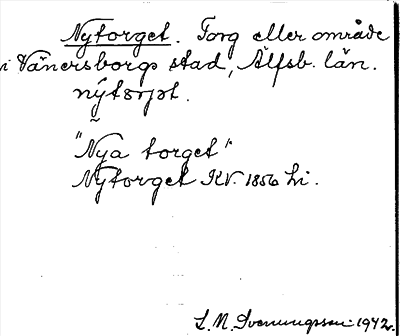 Nytorget. Torg eller område
i Vänersborgs stad, Älfsb. län.
"Nya torget"
Nytorget KV. 1856 hi.
S. M. Svenungsson 1942.